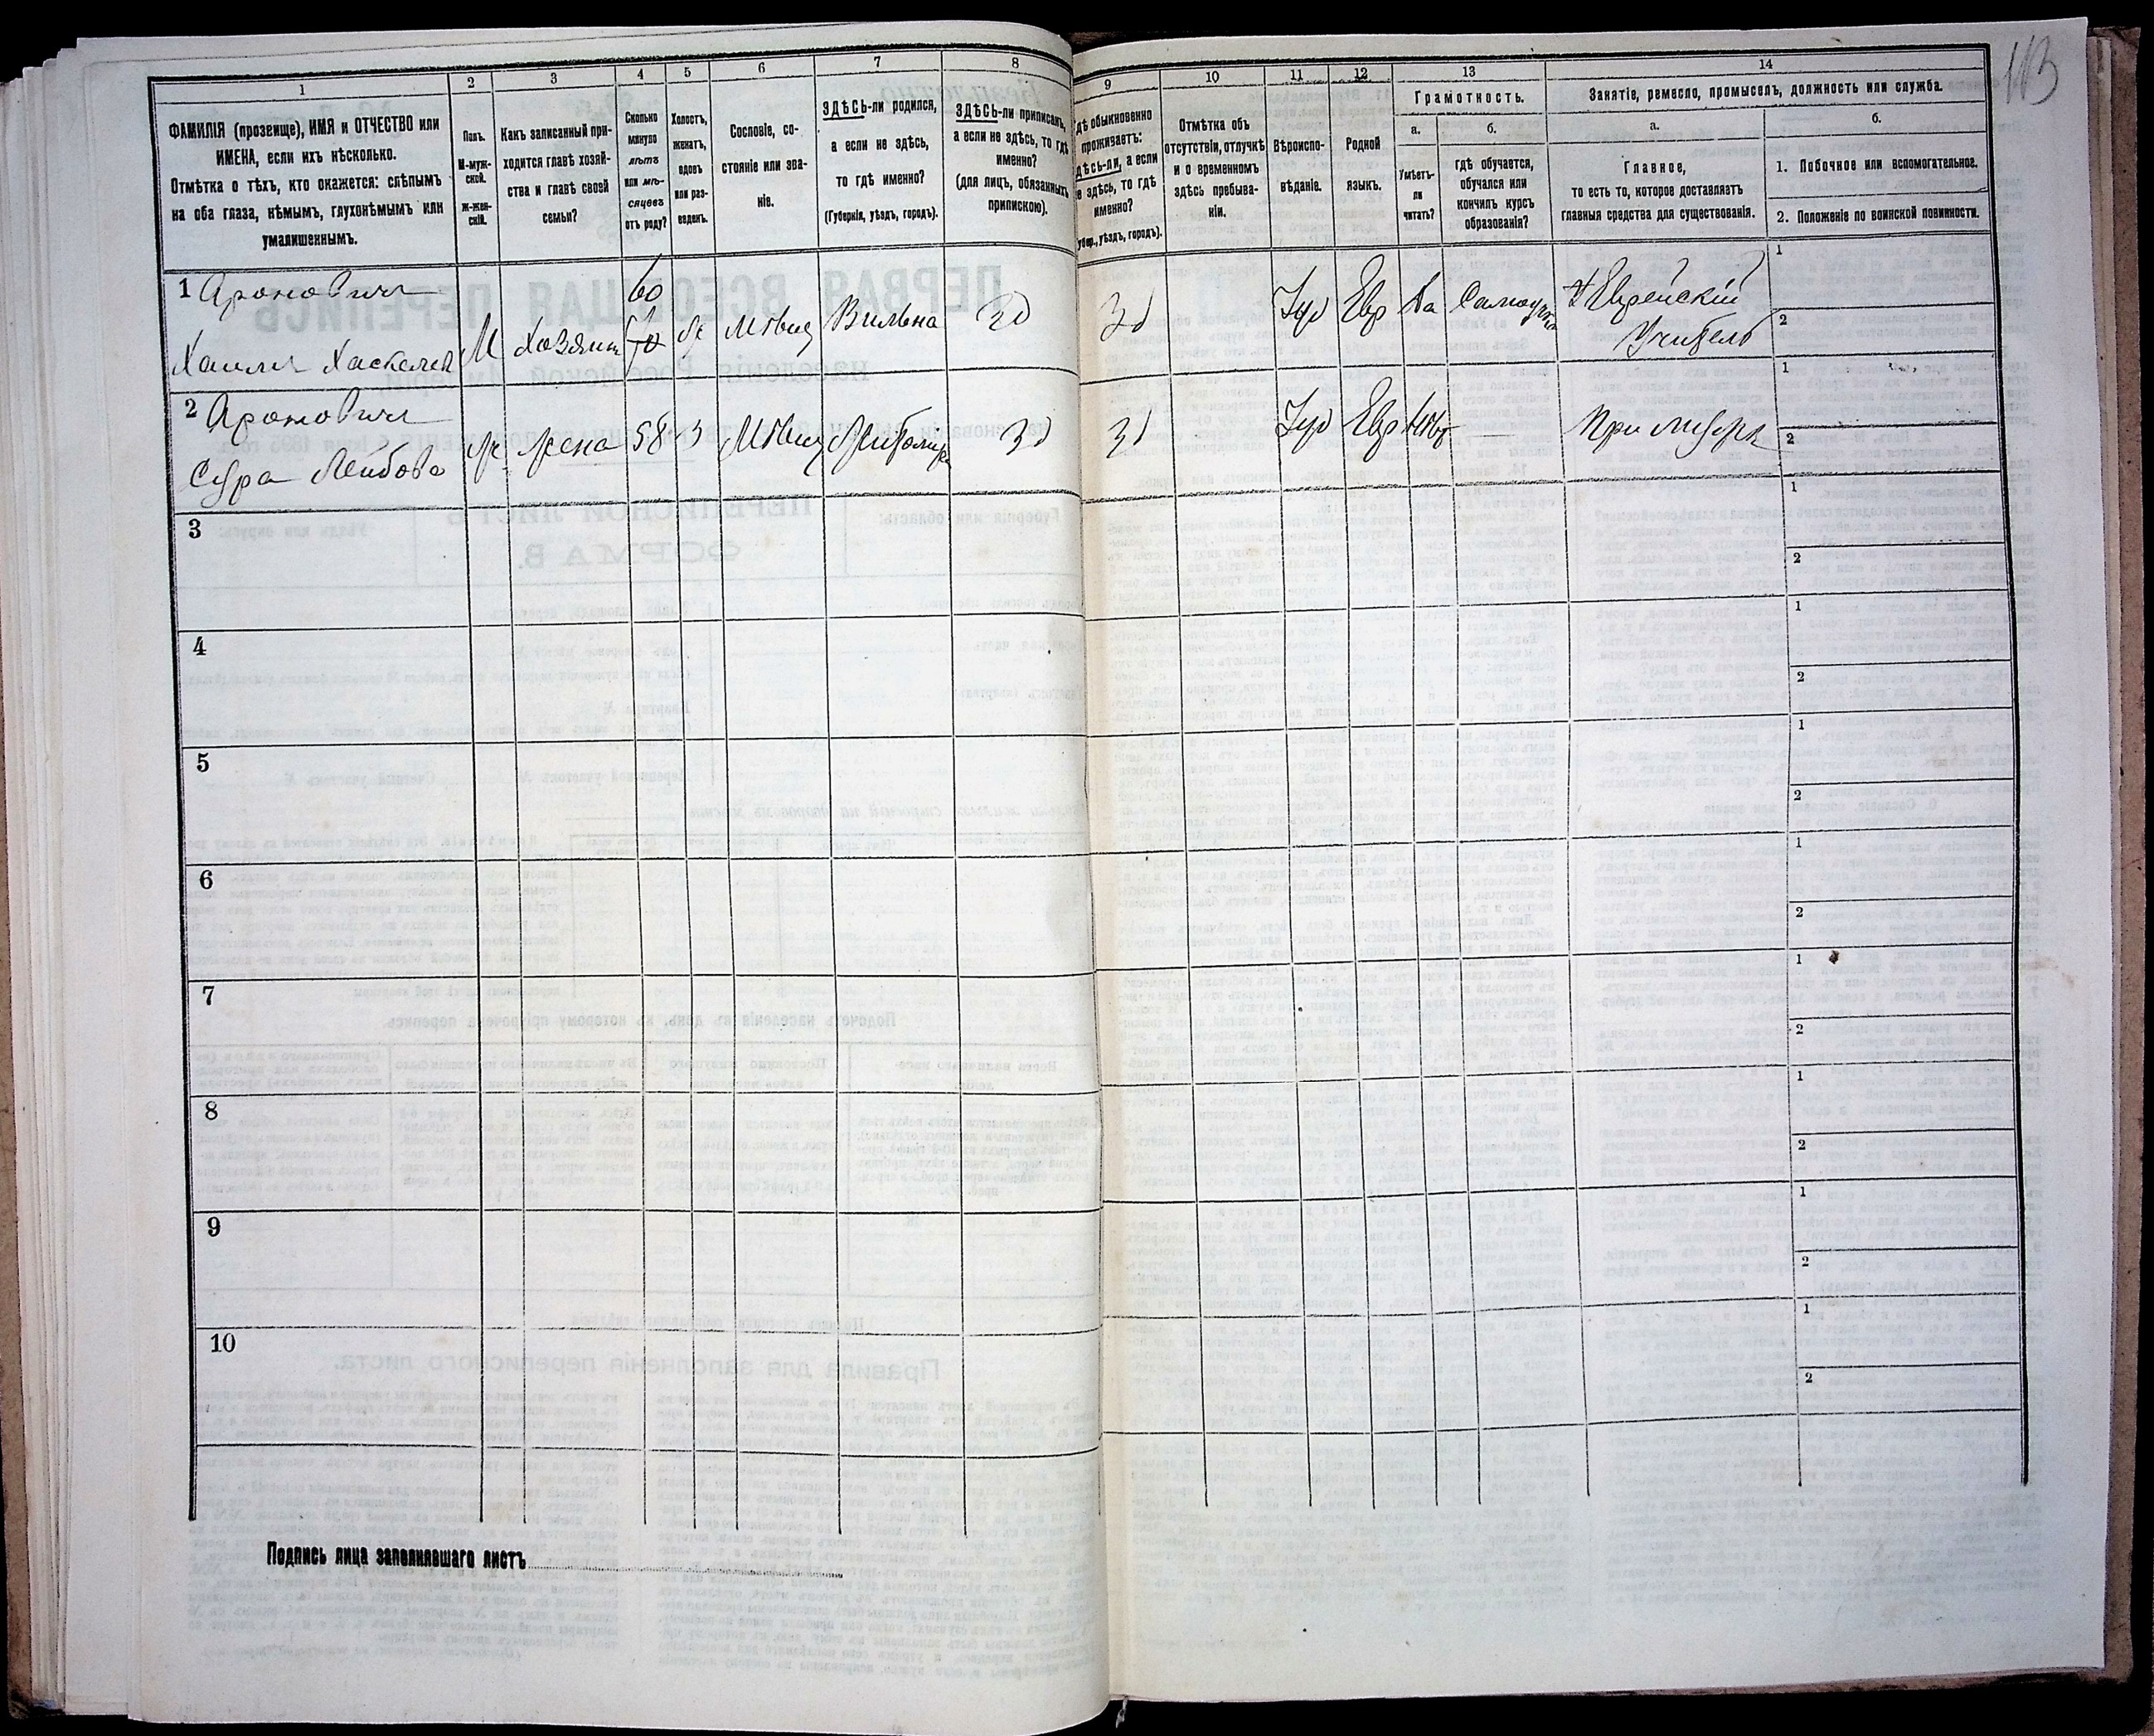 113
1 2 3 4 5 6 7 8 9 10 11 12 13 14
ФАМИЛІЯ (прозвище), ИМЯ и ОТЧЕСТВО или
ИМЕНА, если ихъ нѣсколько.
Отмѣтка о тѣхъ, кто окажется: слѣпымъ
на оба глаза, нѣмымъ, глухонѣмымъ или
умалишеннымъ.
Полъ.
М-муж-
ской.
Ж-жен-
скій.
Какъ записанный при-
ходится главѣ хозяй-
ства и главѣ своей
семьи?
Сколько
минуло
лѣтъ
или мѣ-
сяцевъ
отъ роду?
Холостъ,
женатъ,
вдовъ
или раз-
веденъ.
Сословіе, со-
стояніе или зва-
ніе.
ЗДѢСЬ-ли родился,
а если не здѣсь,
то гдѣ именно?
(Губернія, уѣздъ, городъ).
ЗДѢСЬ-ли приписанъ,
а если не здѣсь, то гдѣ
именно?
(для лицъ, обязанныхъ
припискою).
дѣ обыкновенно
проживаетъ:
дѣсь-ли, а если
е здѣсь, то гдѣ
именно?
убер., уѣздъ, городъ).
Отмѣтка объ
отсутствіи, отлучкѣ
и о временномъ
здѣсь пребыва-
ніи.
Вѣроиспо-
вѣданіе.
Родной
языкъ.
Грамотность.
а.
Умѣетъ-
ли
читать?
б.
гдѣ обучается,
обучался или
кончилъ курсъ
образованія?
Занятіе, ремесло, промыселъ, должность или служба.
а.
Главное,
то есть то, которое доставляетъ
главныя средства для существованія.
б.
1. Побочное или вспомогательное.
2. Положеніе по воинской повинности.
1 Ароновичъ
Хаимъ Хаскелев М Хозяинъ 60 ж Мѣщ Вильна Зд Зд Іуд Евр Да Самоучка Еврейскій
Учитель
1
2
2 Ароновичъ
Сура Лейбова Ж Жена 58 З Мѣщ Зд Зд Іуд Евр Нѣтъ — При мужѣ
1
2
3
1
2
4
1
2
5
1
2
6
1
2
7
1
2
8
1
2
9
1
2
10
1
2
Подпись лица заполнявшаго листъ